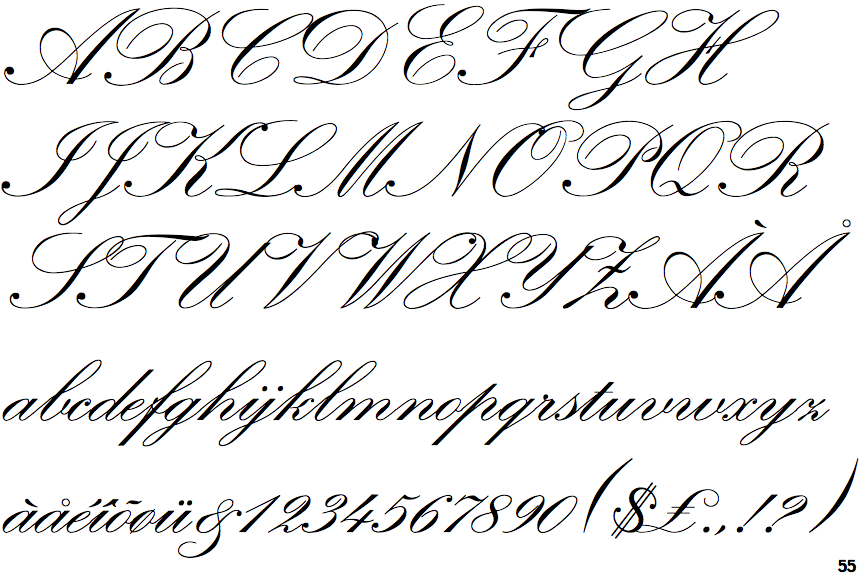 ABCDEFGH
IJKLMNOPQR
STUVWXYZÀÅ
abcdefghijklmnopqrstuvwxyz
àåéîõøü&1234567890($£.,!?)
55